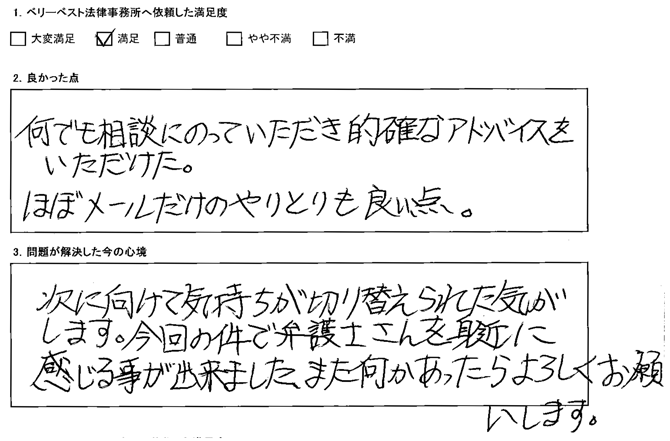 1. ベリーベスト法律事務所へ依頼した満足度
□ 大変満足 ☑ 満足 □ 普通 □ やや不満 □ 不満
2. 良かった点
何でも相談にのっていただき的確なアドバイスを
いただけた。
ほぼメールだけのやりとりも良い点。
3. 問題が解決した今の心境
次に向けて気持ちが切り替えられた気が
します。今回の件で弁護士さんを身近に
感じる事が出来ました、また何かあったらよろしくお願
いします。